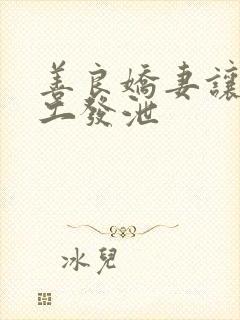 善良嬌妻讓
工發泄
冰兒